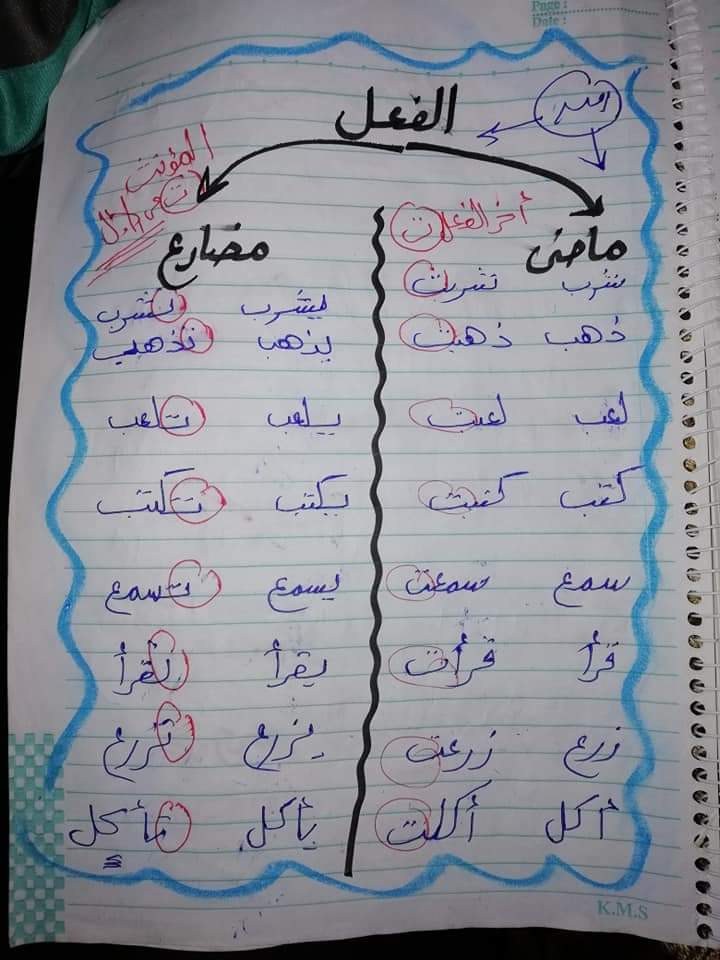 Page :
Date :
الفعل
المؤنث
ت في الأول
أخر الفعل ت
ماضى
مضارع
شرب شربت يشرب تشرب
ذهب ذهبت يذهب تذهب
لعب لعبت يلعب تلعب
كتب كتبت يكتب تكتب
سمع سمعت يسمع تسمع
قرأ قرأت يقرأ تقرأ
زرع زرعت يزرع تزرع
أكل أكلت يأكل تأكل
K.M.S